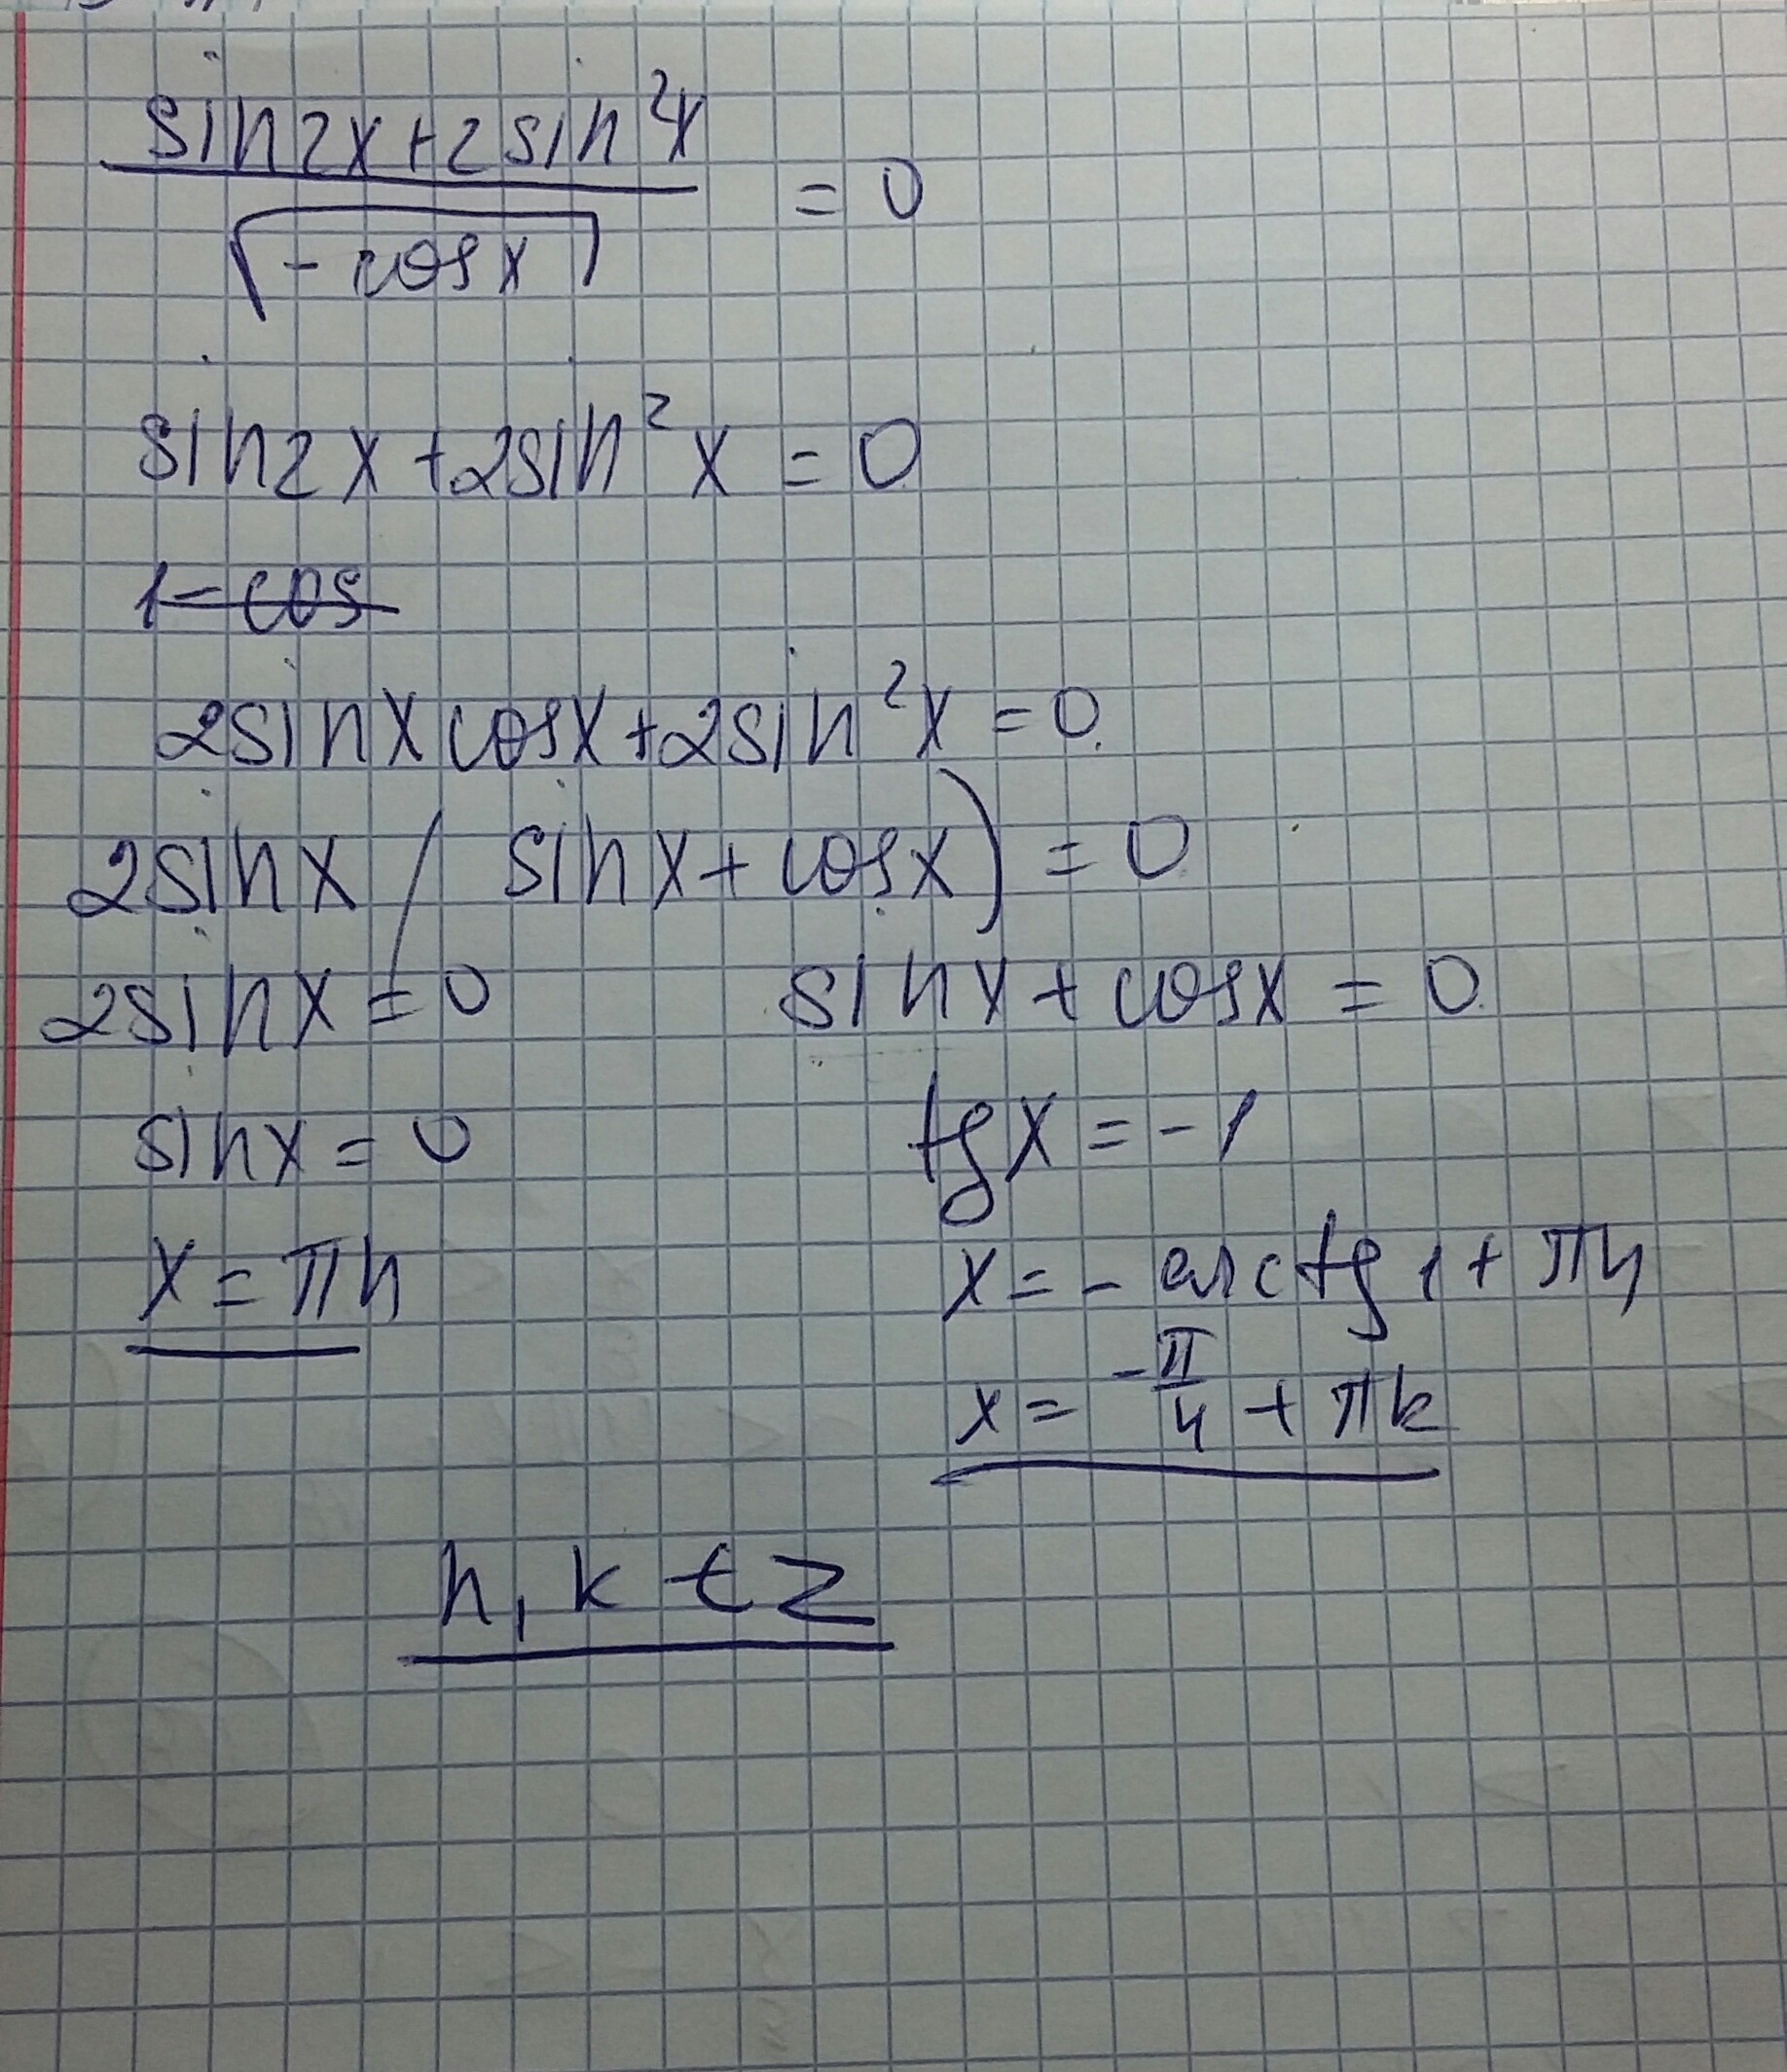 sin2x+2sin²x
————————— = 0
√(-cosx)
sin2x+2sin²x = 0
1-cos
2sinxcosx+2sin²x = 0.
2sinx ( sinx+cosx) = 0.
2sinx = 0 sinx + cosx = 0.
sinx = 0 tgx = -1
x = πn x = - arctg 1 + πn
x = -π/4 + πk
n, k ∈ Z